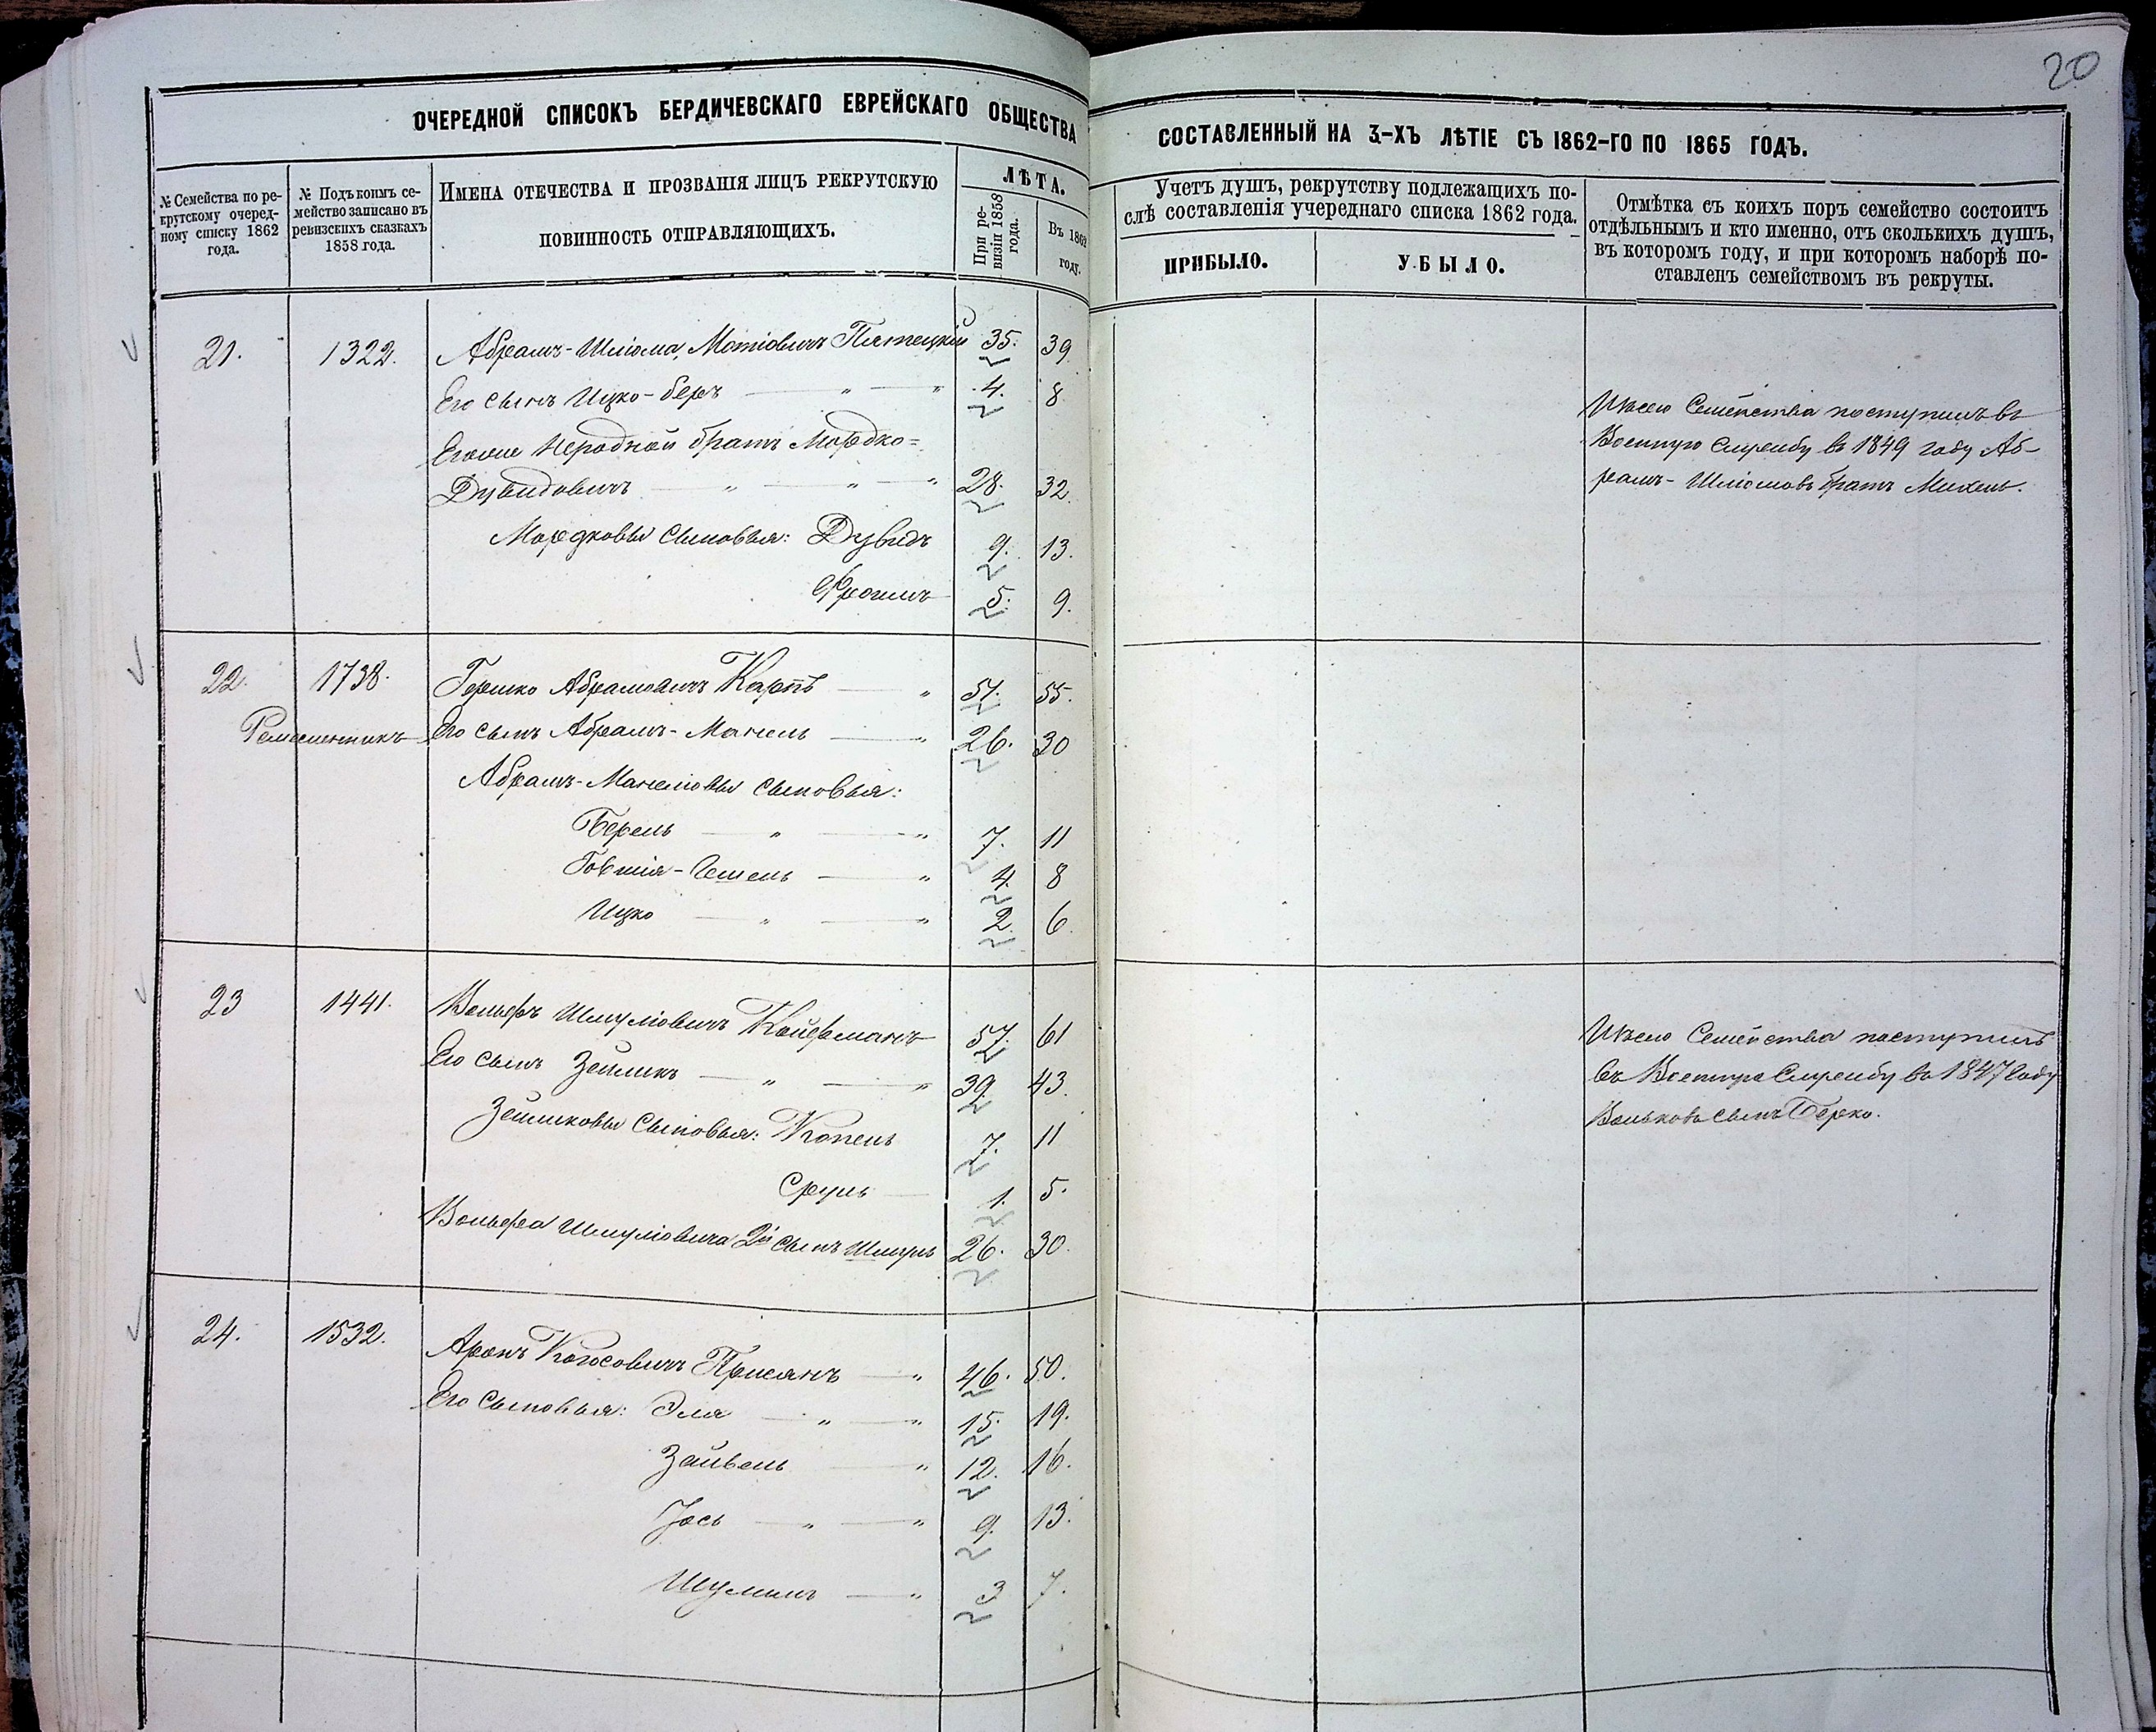 20
ОЧЕРЕДНОЙ СПИСОКЪ БЕРДИЧЕВСКАГО ЕВРЕЙСКАГО ОБЩЕСТВА
СОСТАВЛЕННЫЙ НА 3-ХЪ ЛѢТІЕ СЪ 1862-ГО ПО 1865 ГОДЪ.
№ Семейства по ре-
крутскому очеред-
ному списку 1862
года.
№ Подъ коимъ се-
мейство записано въ
ревизскихъ сказкахъ
1858 года.
ИМЕНА ОТЕЧЕСТВА И ПРОЗВАНІЯ ЛИЦЪ РЕКРУТСКУЮ
ПОВИННОСТЬ ОТПРАВЛЯЮЩИХЪ.
ЛѢТА.
При ре-
визіи 1858
года.
Въ 1862
году.
Учетъ душъ, рекрутству подлежащихъ по-
слѣ составленія учереднаго списка 1862 года.
ПРИБЫЛО.
УБЫЛО.
Отмѣтка съ коихъ поръ семейство состоитъ
отдѣльнымъ и кто именно, отъ сколькихъ душъ,
въ которомъ году, и при которомъ наборѣ по-
ставленъ семействомъ въ рекруты.
21. 1322. Абрамъ-Шліома Мотіовичъ Пятецкій 35. 39
Его сынъ Ицко-Беръ — " — " 4. 8
Егоже Неродной братъ Мордко=
Дувидовичъ — " — " — " 28. 32
Мордковы сыновья: Дувидъ 9. 13.
Фроимъ 5. 9.
Изъ сего Семейства поступилъ въ
Военную службу въ 1849 году Аб-
рамъ-Шліомовъ братъ Михель.
22. 1738. Гершко Абрамовичъ Карпъ — " 51. 55.
Ремесленникъ Его сынъ Абрамъ-Манель — " 26. 30
Абрамъ-Манеліовы сыновья:
Берель — " — " 7. 11
Говшія-Гешель — " 4. 8
Ицко — " — " 2 6.
23 1441. Вольфъ Шмуліовичъ Койфманъ 57. 61
Его сынъ Зейликъ — " — " 39. 43.
Зейликовы сыновья: Копель 7. 11
Сруль — 1. 5.
Вольфа Шмуліовича 2й сынъ Шмуль 26. 30.
Изъ сего Семейства поступилъ
въ Военную службу въ 1847 году
Вольковъ сынъ Берко.
24. 1532. Аронъ Когосовичъ Присянъ — " 46. 50.
Его сыновья: Эля — " — " 15. 19.
Зайвель — " 12. 16.
Іось — " — " 9. 13.
Шулимъ — " 3 7.